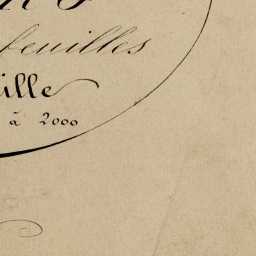 feuilles
ille
à 2000